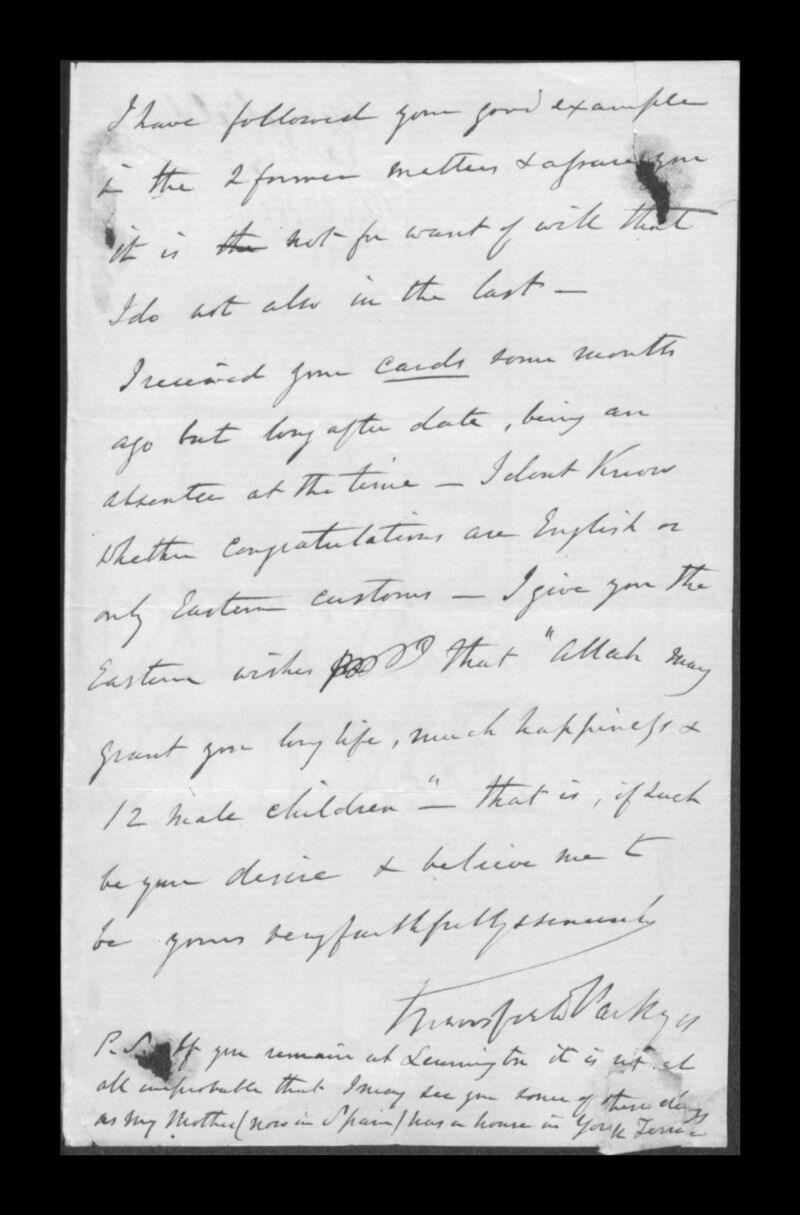 I have followed your good example
in the 2 former matters & assure you
it is the not for want of will that
I do not also in the last —
I received your cards some months
ago but long after date, being an
absentee at the time — I dont Know
whether congratulations are English or
only Eastern customs — I give you the
Eastern wishes that "Allah may
grant you long life, much happiness &
12 male children" — that is, if such
be your desire & believe me to
be yours very faithfully & sincerely
Mansfield Parkyns
P.S. If you remain at Leamington it is not at
all improbable that I may see you some of these days
as my Mother (now in Spain) has a house in York Terrace